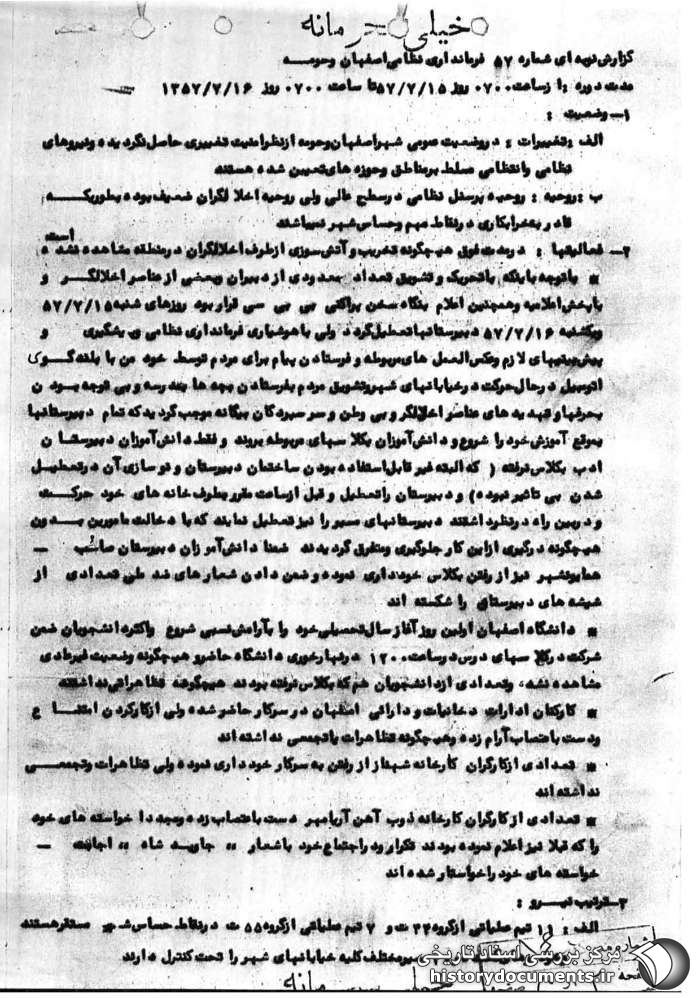 خیلی محرمانه
گزارش نوبه ای شماره ۵۷ فرمانداری نظامی اصفهان وحومه
مدت دوره : از ساعت ۰۷۰۰ روز ۵۷/۷/۱۵ تا ساعت ۰۷۰۰ روز ۱۳۵۷/۷/۱۶
۱ـ وضعیت :
الف : تغییرات : در وضعیت عمومی شهر اصفهان وحومه از نظر امنیت تغییری حاصل نگردیده ونیروهای
نظامی وانتظامی مسلط بر مناطق وحوزه های تعیین شده هستند
ب : روحیه : روحیه پرسنل نظامی در سطح عالی ولی روحیه اخلالگران ضعیف بوده بطوریکه
قادر به خرابکاری در نقاط مهم وحساس شهر نمیباشند
۲ـ فعالیتها : در مدت فوق هیچگونه تخریب وآتش سوزی از طرف اخلالگران در منطقه مشاهده نشده است
* باتوجه باینکه باتحریک و تشویق تعداد معدودی از دبیران وبعضی از عناصر اخلالگر و
باپخش اعلامیه وهمچنین اعلام بنگاه سخن پراکنی بی بی سی قرار بود روزهای شنبه ۵۷/۷/۱۵
ویکشنبه ۵۷/۷/۱۶ دبیرستانها تعطیل گردد ولی با هوشیاری فرمانداری نظامی و پیشگیری و
پیش بینیهای لازم وعکس العمل های مربوطه و فرستادن پیام برای مردم توسط خود من با بلندگوی
اتومبیل در حال حرکت در خیابانهای شهر وتشویق مردم بفرستادن بچه ها بمدرسه و بی توجه بودن
بحرفها و تهدیدهای عناصر اخلالگر و بی وطن و سرسپردگان بیگانه موجب گردید که تمام دبیرستانها
بموقع آموزش خود را شروع و دانش آموزان بکلاسهای مربوطه بروند و فقط دانش آموزان دبیرستان
ادب بکلاس نرفته ( که البته غیر قابل استفاده بودن ساختمان دبیرستان و نوسازی آن در تعطیل
شدن بی تاثیر نبوده ) و دبیرستان را تعطیل و قبل از ساعت مقرر بطرف خانه های خود حرکت
و در بین راه در نظر داشتند دبیرستانهای مسیر را نیز تعطیل نمایند که با دخالت مامورین بدون
هیچگونه درگیری از این کار جلوگیری ومتفرق گردیدند ضمنا دانش آموزان دبیرستان صائب ـ
همایونشهر نیز از رفتن بکلاس خودداری نموده و ضمن دادن شعارهای ضد ملی تعدادی از
شیشه های دبیرستان را شکسته اند
* دانشگاه اصفهان اولین روز آغاز سال تحصیلی خود را بآرامش نسبی شروع واکثر دانشجویان ضمن
شرکت در کلاسهای درس در ساعت ۱۲۰۰ در نهارخوری دانشگاه حاضر و هیچگونه وضعیت غیرعادی
مشاهده نشد، وتعدادی از دانشجویان هم که بکلاس نرفته بودند هیچگونه تظاهراتی نداشته
* کارکنان ادارات دخانیات و دارائی اصفهان در سرکار حاضر شده ولی از کارکردن امتناع
ودست باعتصاب آرام زده وهیچگونه تظاهرات یا تجمعی نداشته اند
* تعدادی از کارگران کارخانه شهناز از رفتن به سرکار خودداری نموده ولی تظاهرات وتجمعی
نداشته اند
* تعدادی از کارگران کارخانه ذوب آهن آریامهر دست باعتصاب زده ومجددا خواسته های خود
را که قبلا نیز اعلام نموده بودند تکرار و در اجتماع خود با شعار " جاوید شاه " اجابت ـ
خواسته های خود را خواستار شده اند
۳ـ ترتیب نیرو :
الف : ۱۱ تیم عملیاتی از گروه ۴۴ ت و ۷ تیم عملیاتی از گروه ۵۵ ت در نقاط حساس شهر مستقر هستند
مختلف کلیه خیابانهای شهر را تحت کنترل دارند
شماره
صفحه
مرکز بررسی اسناد تاریخی
historydocuments.ir